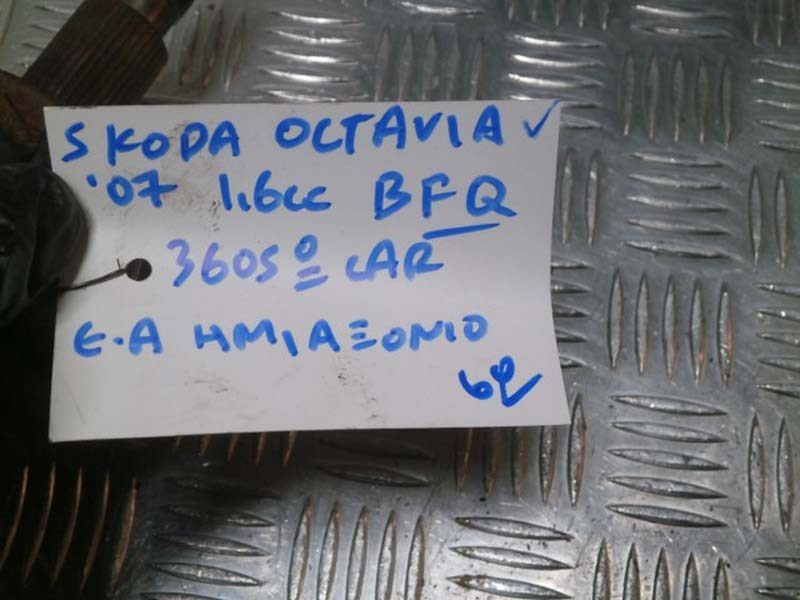 SKODA OCTAVIA ✓
'07 1.6cc BFQ
3605º CAR
Ε.Δ ΗΜΙΑΞΟΝΙΟ